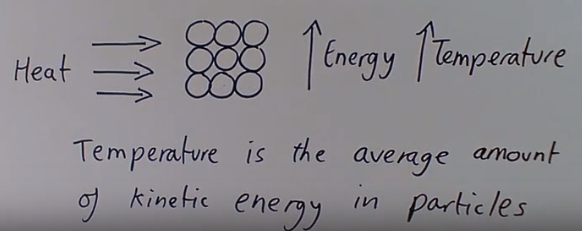 Heat ↑ Energy ↑ Temperature
Temperature is the average amount
of kinetic energy in particles